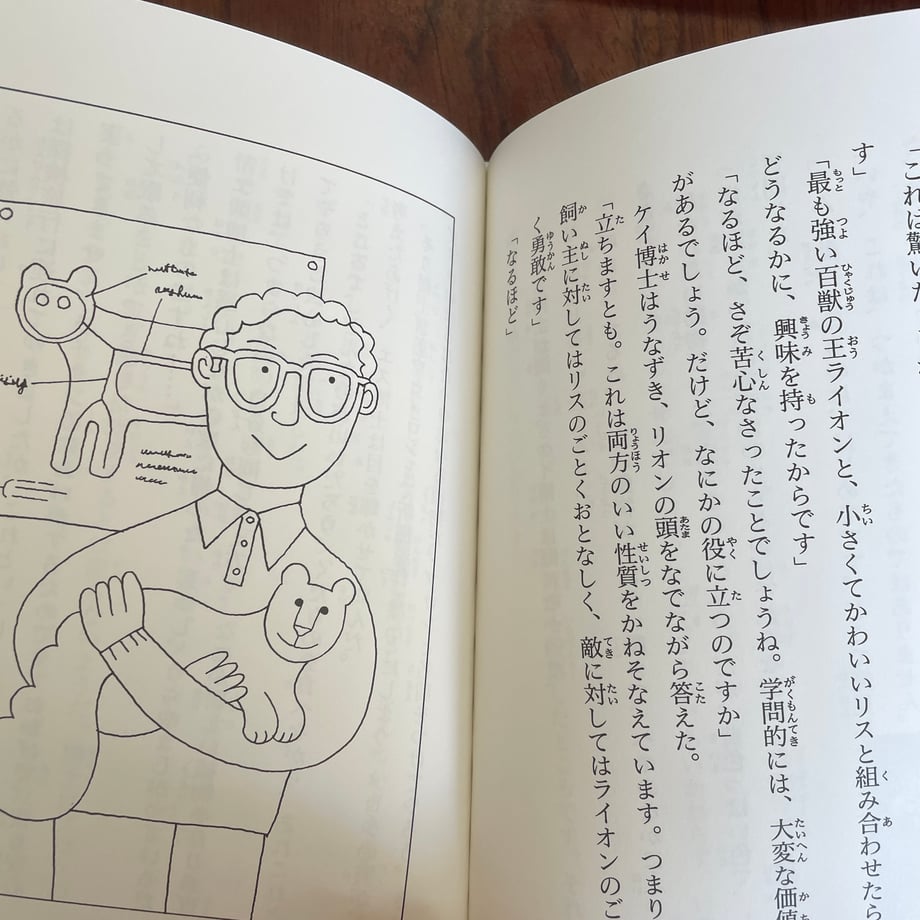 「これは驚いた
す」
「最も強い百獣の王ライオンと、小さくてかわいいリスと組み合わせたら
どうなるかに、興味を持ったからです」
「なるほど、さぞ苦心なさったことでしょうね。学問的には、大変な価値
があるでしょう。だけど、なにかの役に立つのですか」
ケイ博士はうなずき、リオンの頭をなでながら答えた。
「立ちますとも。これは両方のいい性質をかねそなえています。つまり
飼い主に対してはリスのごとくおとなしく、敵に対してはライオンのご
く勇敢です」
「なるほど」